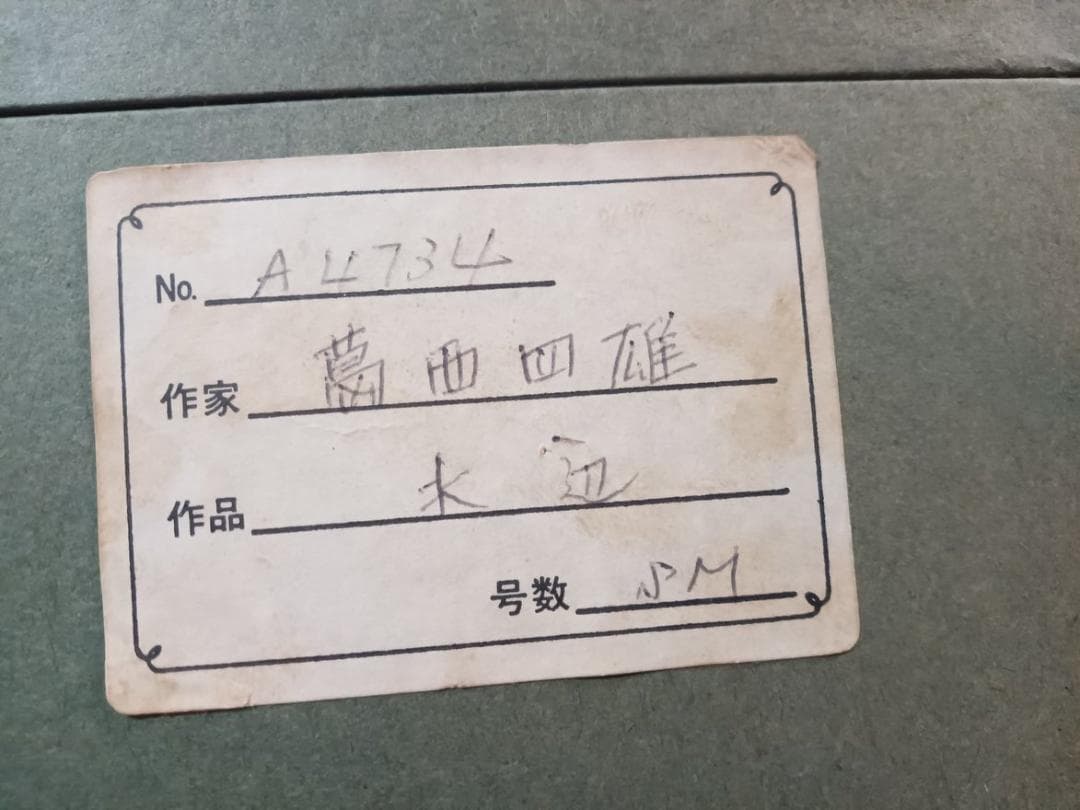 No. A4734
作家 葛西四雄
作品 水辺
号数 SM